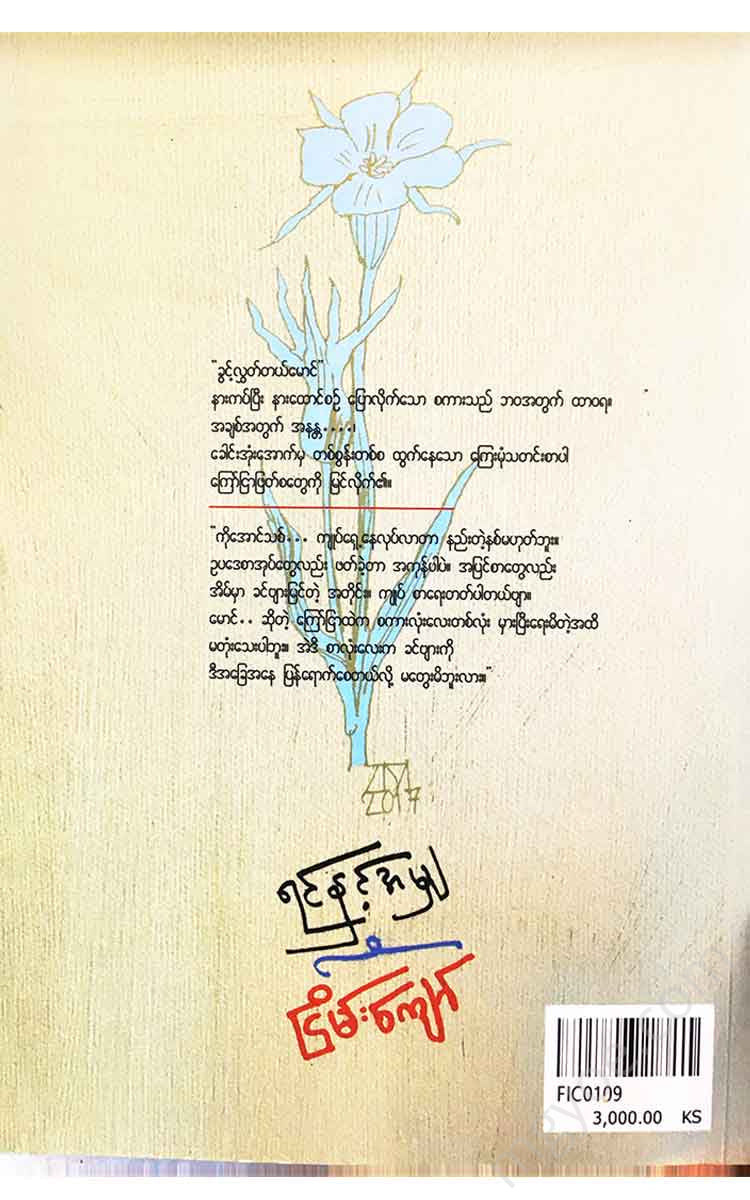 "ခွင့်လွှတ်တယ်မောင်"
နားကပ်ပြီး နားထောင်စဉ် ပြောလိုက်သော စကားသည် ဘဝအတွက် ထာဝရ။
အချစ်အတွက် အနန္တ....၊
ခေါင်းအုံးအောက်မှ တစ်စွန်းတစ်စ ထွက်နေသော ကြေးမုံသတင်းစာပါ
ကြော်ငြာဖြတ်စတွေကို မြင်လိုက်၏။
"ကိုအောင်သစ်... ကျုပ်ရှေ့နေလုပ်လာတာ နည်းတဲ့နှစ်မဟုတ်ဘူး။
ဥပဒေစာအုပ်တွေလည်း ဖတ်ခဲ့တာ အကုန်ပါပဲ။ အပြင်စာတွေလည်း
အိမ်မှာ ခင်ဗျားမြင်တဲ့ အတိုင်း။ ကျုပ် စာရေးတတ်ပါတယ်ဗျာ။
မောင်.. ဆိုတဲ့ ကြော်ငြာထဲက စကားလုံးလေးတစ်လုံး မှားပြီးရေးမိတဲ့အထိ
မတုံးသေးပါဘူး။ အဲဒီ စာလုံးလေးက ခင်ဗျားကို
ဒီအခြေအနေ ပြန်ရောက်စေတယ်လို့ မတွေးမိဘူးလား။"
2017
ရင်နှင့်အမျှ
ငြိမ်းကျော်
FIC0109
3,000.00 KS